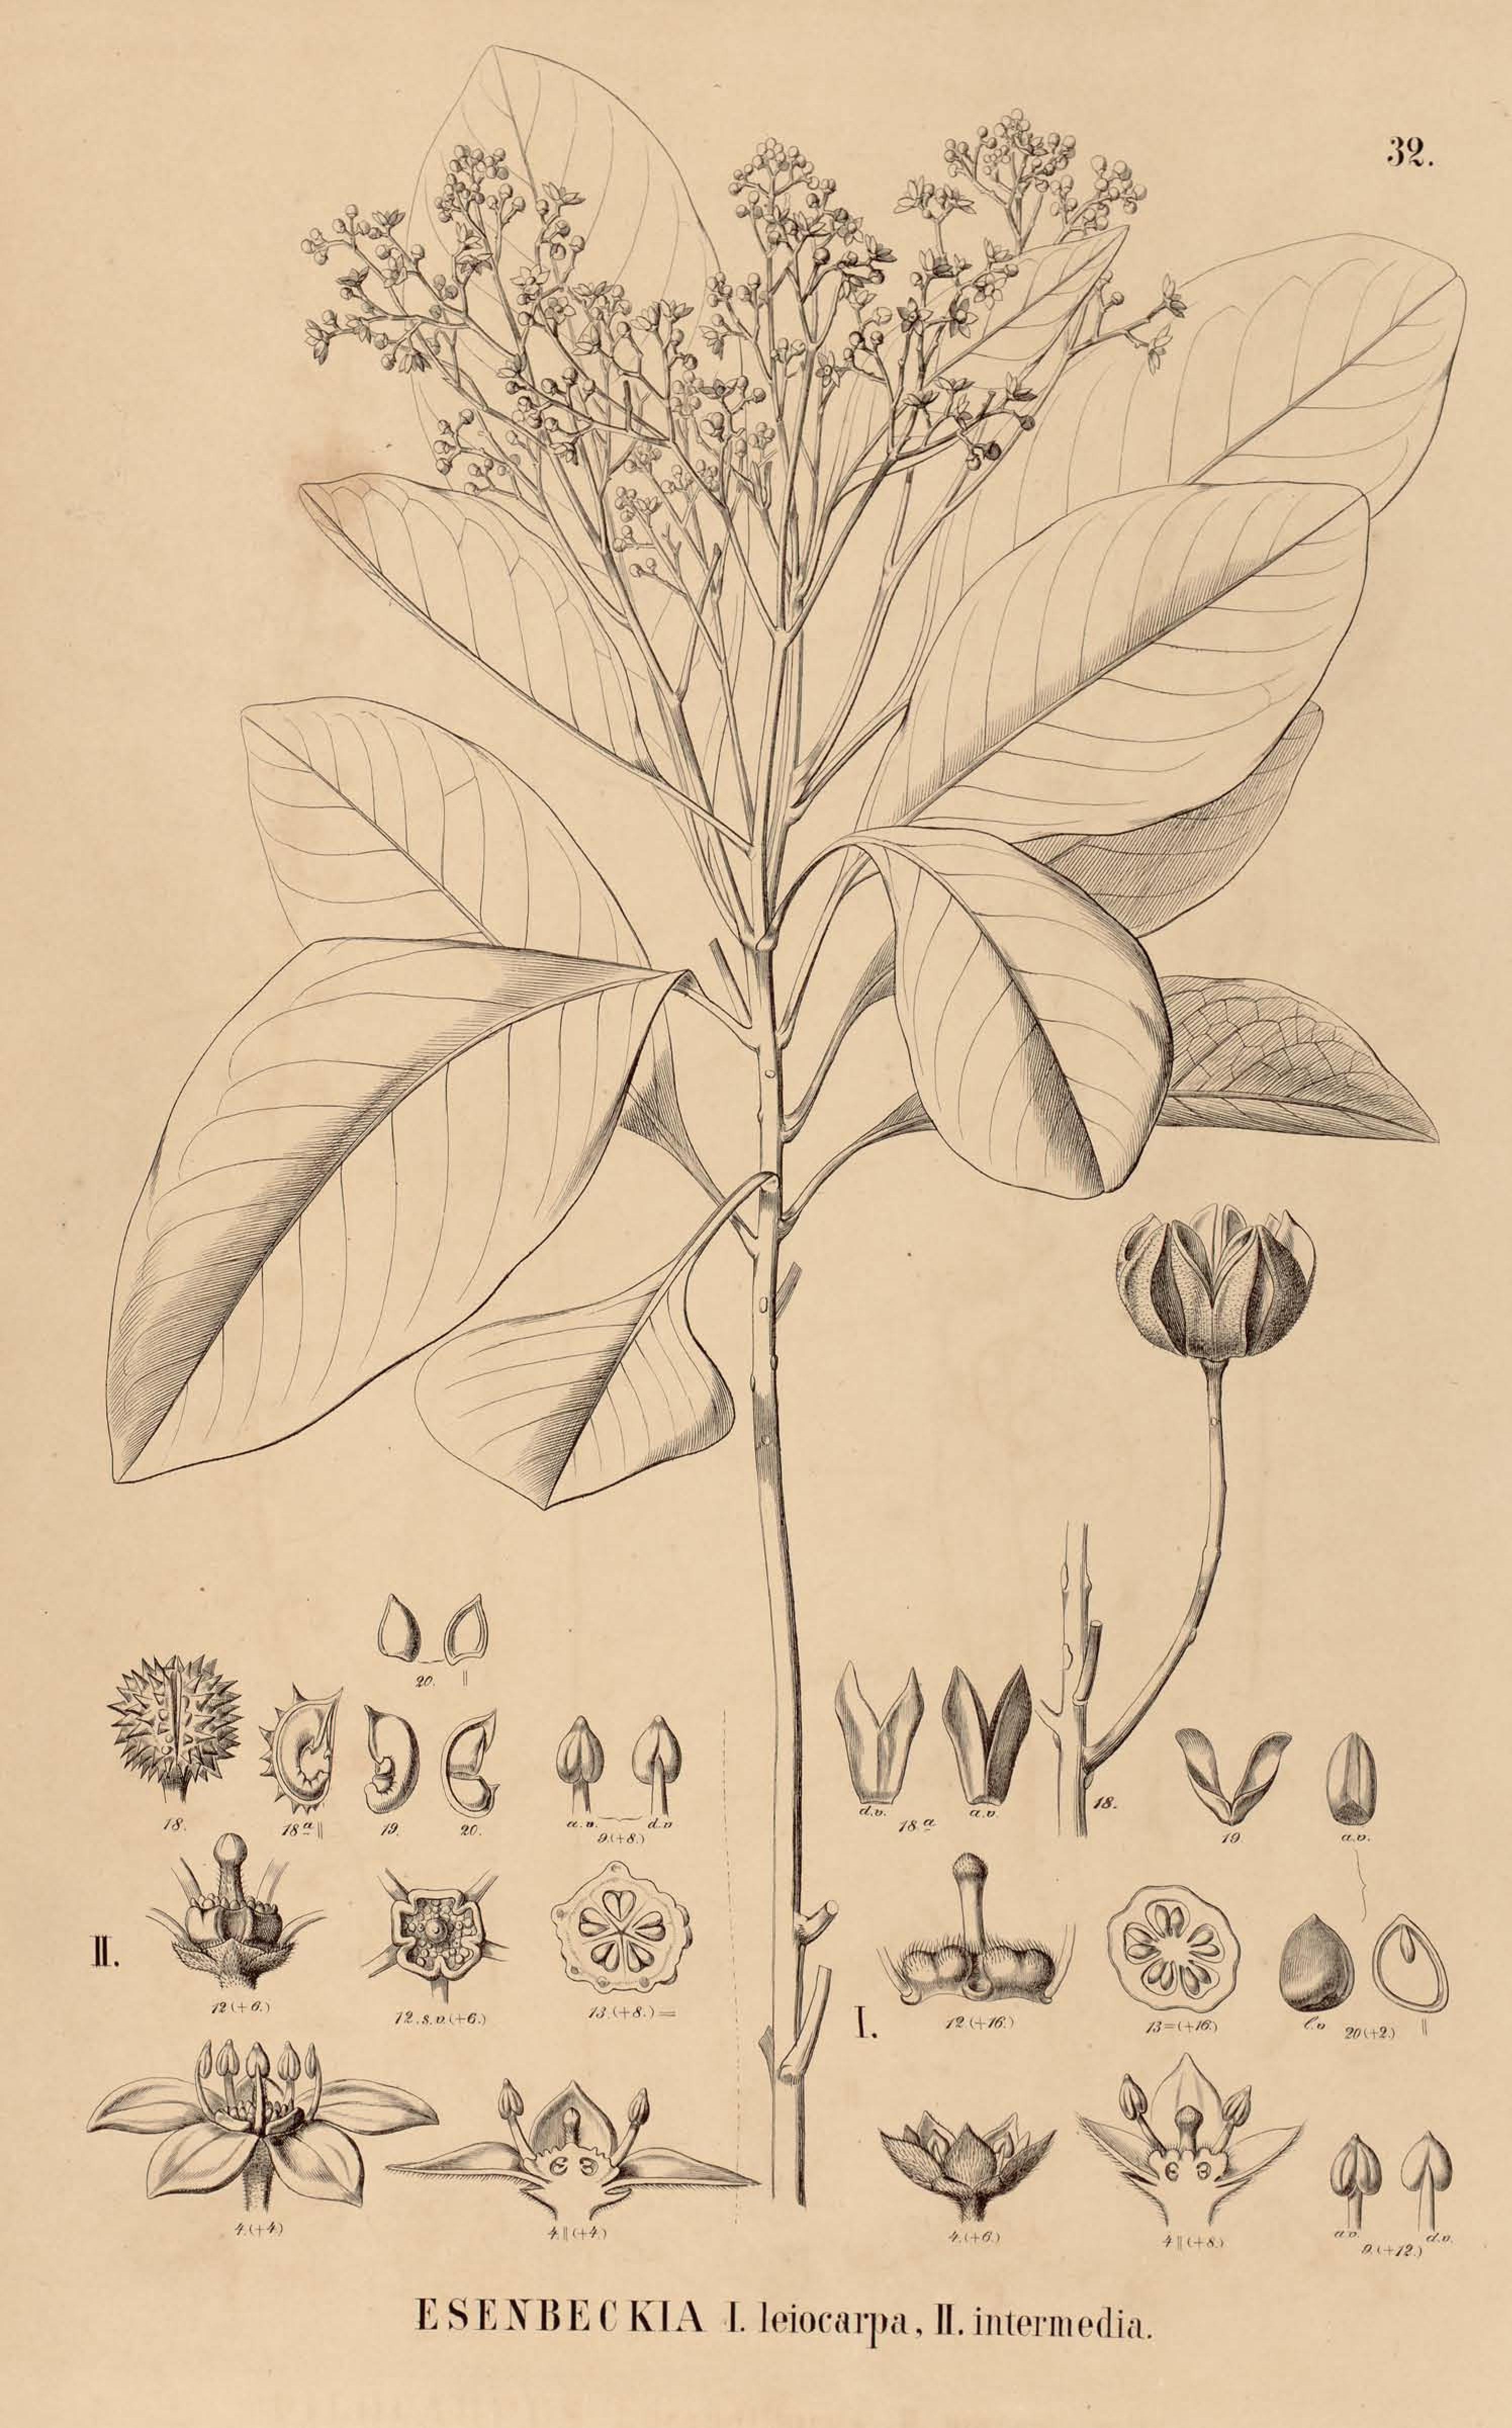 32.
20. ||
18.
18ª ||
19.
20.
a.v. d.v
9.(+8.)
d.v.
18ª
a.v.
18.
19.
a.v.
II.
12(+6.)
12.s.v.(+6.)
13.(+8.)=
I.
12.(+16.)
13=(+16.)
l.v
20(+2.)
||
4.(+4.)
4.||(+4.)
4.(+6.)
4||(+8.)
a.v.
d.v.
9.(+12.)
ESENBECKIA I. leiocarpa, II. intermedia.